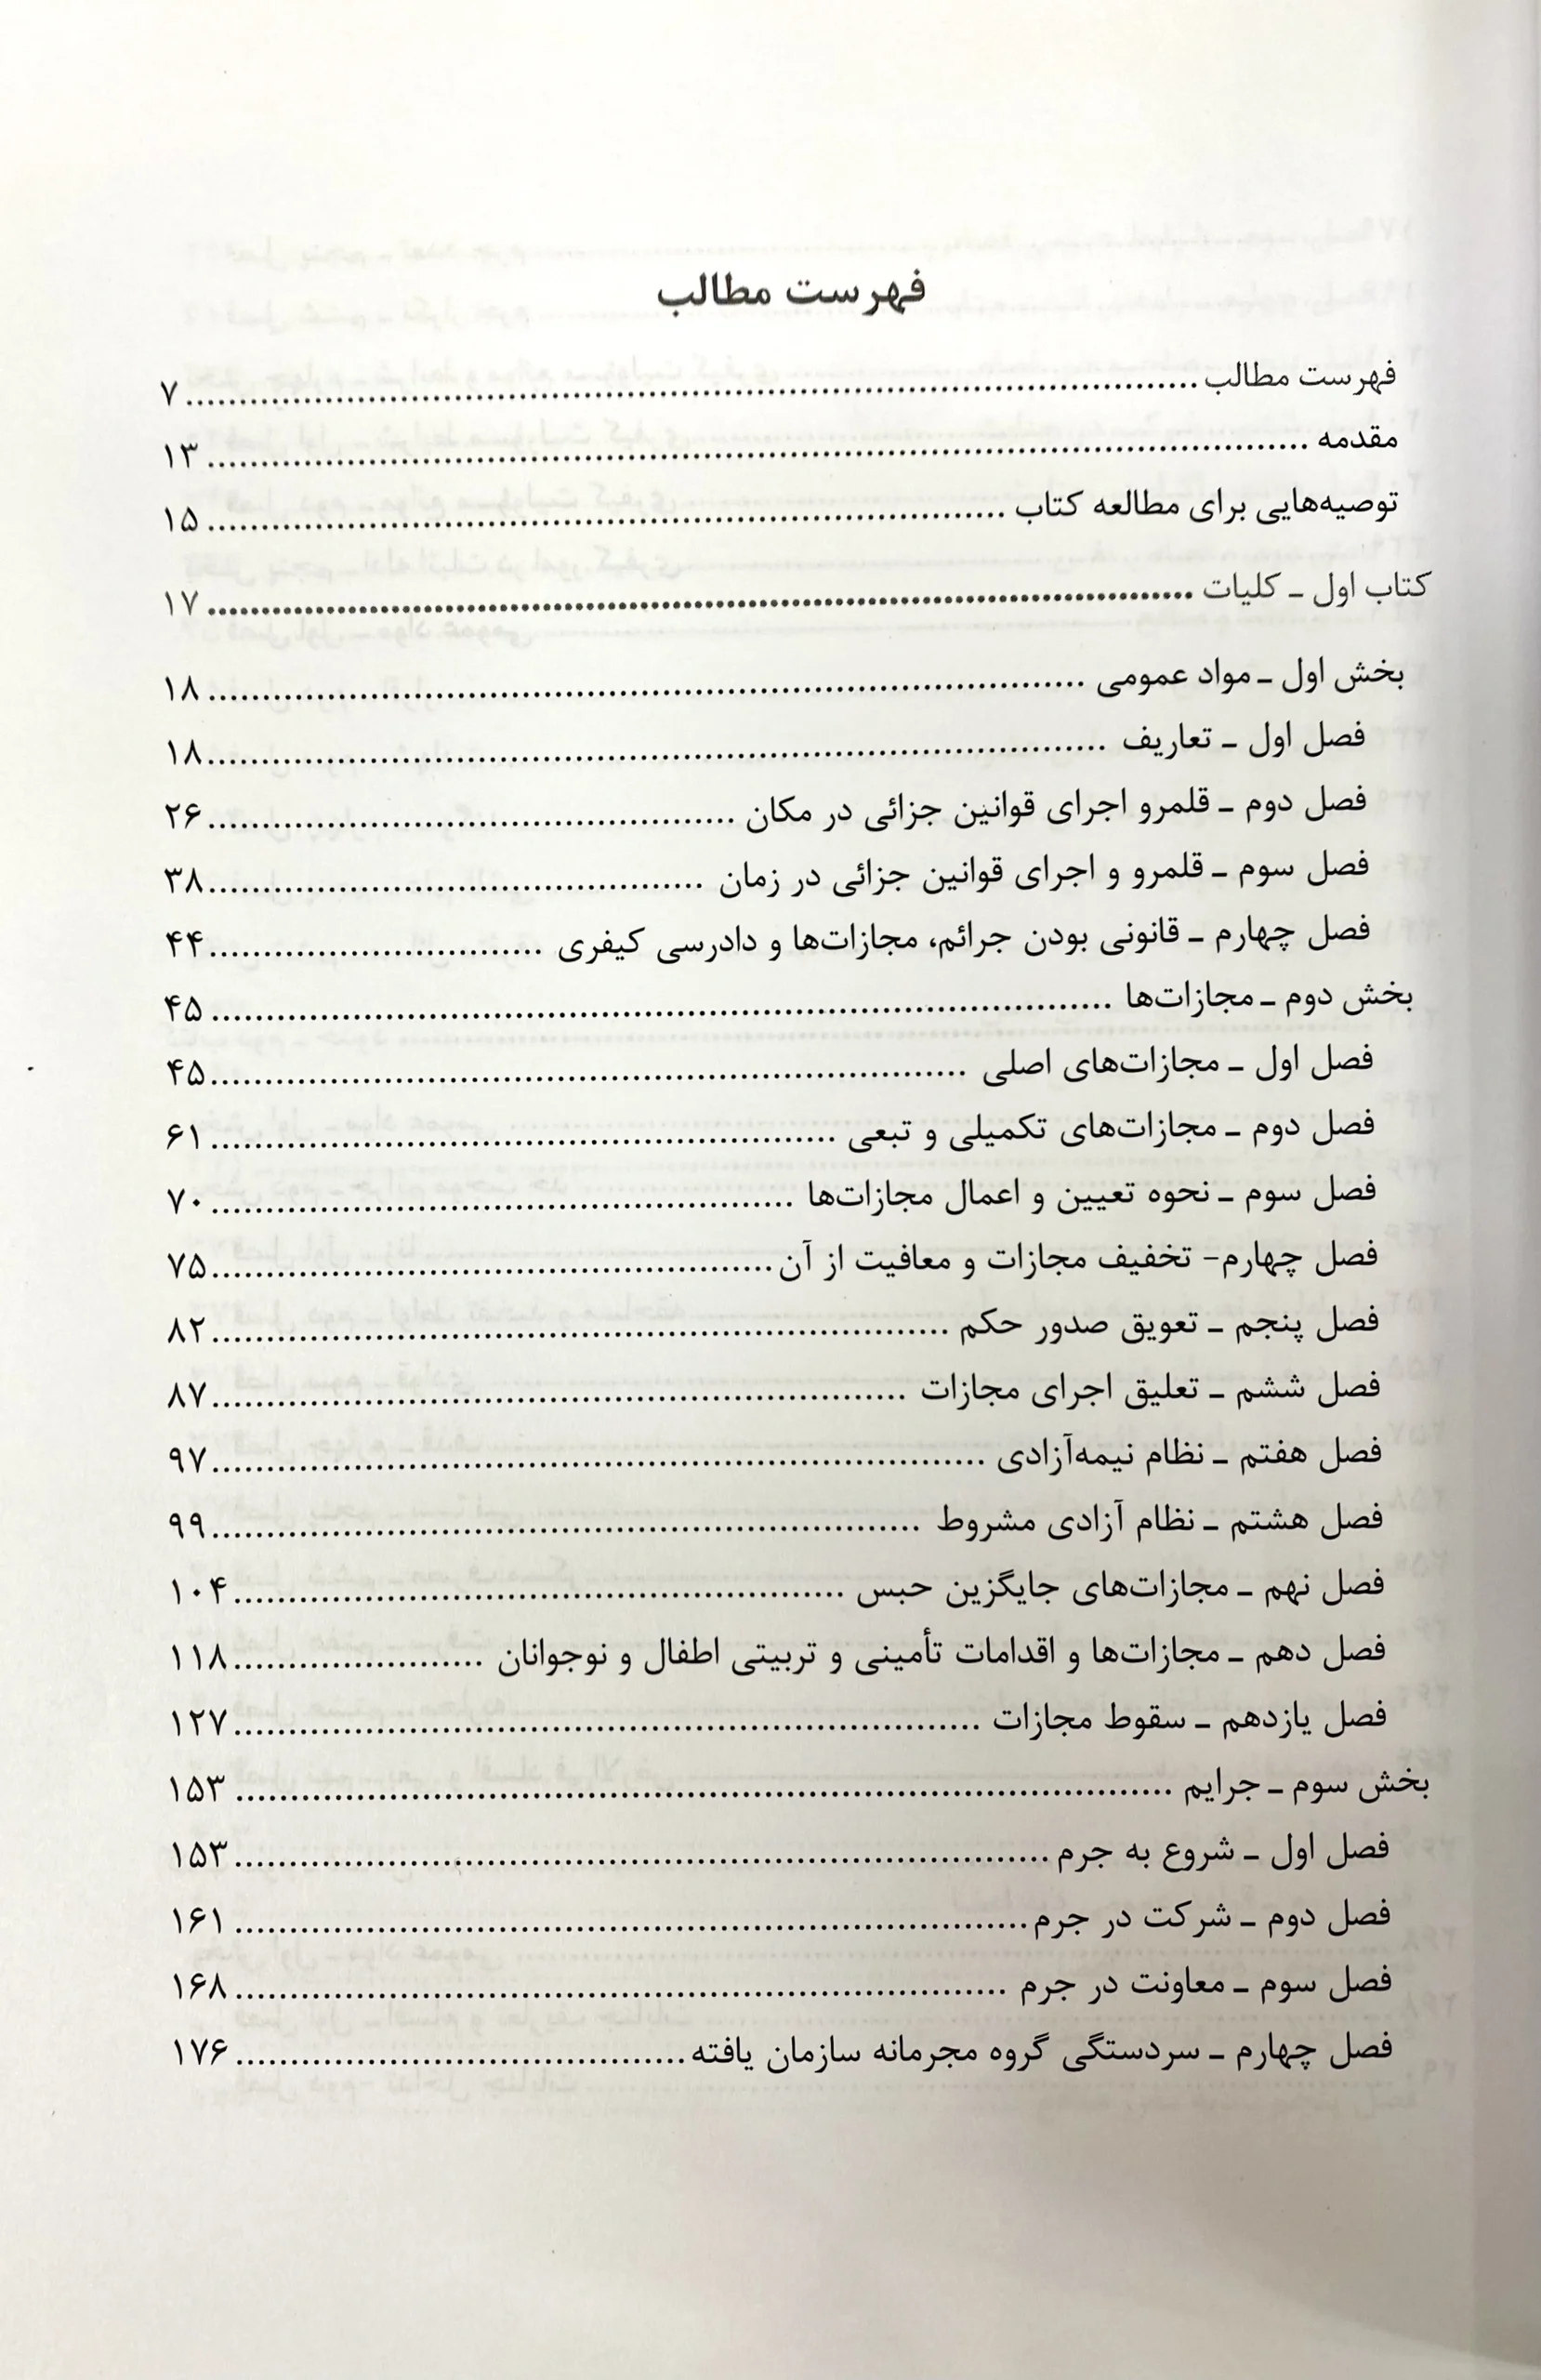 فهرست مطالب
فهرست مطالب ........ ۷
مقدمه ........ ۱۳
توصیه‌هایی برای مطالعه کتاب ........ ۱۵
کتاب اول ـ کلیات ........ ۱۷
بخش اول ـ مواد عمومی ........ ۱۸
فصل اول ـ تعاریف ........ ۱۸
فصل دوم ـ قلمرو اجرای قوانین جزائی در مکان ........ ۲۶
فصل سوم ـ قلمرو و اجرای قوانین جزائی در زمان ........ ۳۸
فصل چهارم ـ قانونی بودن جرائم، مجازات‌ها و دادرسی کیفری ........ ۴۴
بخش دوم ـ مجازات‌ها ........ ۴۵
فصل اول ـ مجازات‌های اصلی ........ ۴۵
فصل دوم ـ مجازات‌های تکمیلی و تبعی ........ ۶۱
فصل سوم ـ نحوه تعیین و اعمال مجازات‌ها ........ ۷۰
فصل چهارم– تخفیف مجازات و معافیت از آن ........ ۷۵
فصل پنجم ـ تعویق صدور حکم ........ ۸۲
فصل ششم ـ تعلیق اجرای مجازات ........ ۸۷
فصل هفتم ـ نظام نیمه‌آزادی ........ ۹۷
فصل هشتم ـ نظام آزادی مشروط ........ ۹۹
فصل نهم ـ مجازات‌های جایگزین حبس ........ ۱۰۴
فصل دهم ـ مجازات‌ها و اقدامات تأمینی و تربیتی اطفال و نوجوانان ........ ۱۱۸
فصل یازدهم ـ سقوط مجازات ........ ۱۲۷
بخش سوم ـ جرایم ........ ۱۵۳
فصل اول ـ شروع به جرم ........ ۱۵۳
فصل دوم ـ شرکت در جرم ........ ۱۶۱
فصل سوم ـ معاونت در جرم ........ ۱۶۸
فصل چهارم ـ سردستگی گروه مجرمانه سازمان یافته ........ ۱۷۶